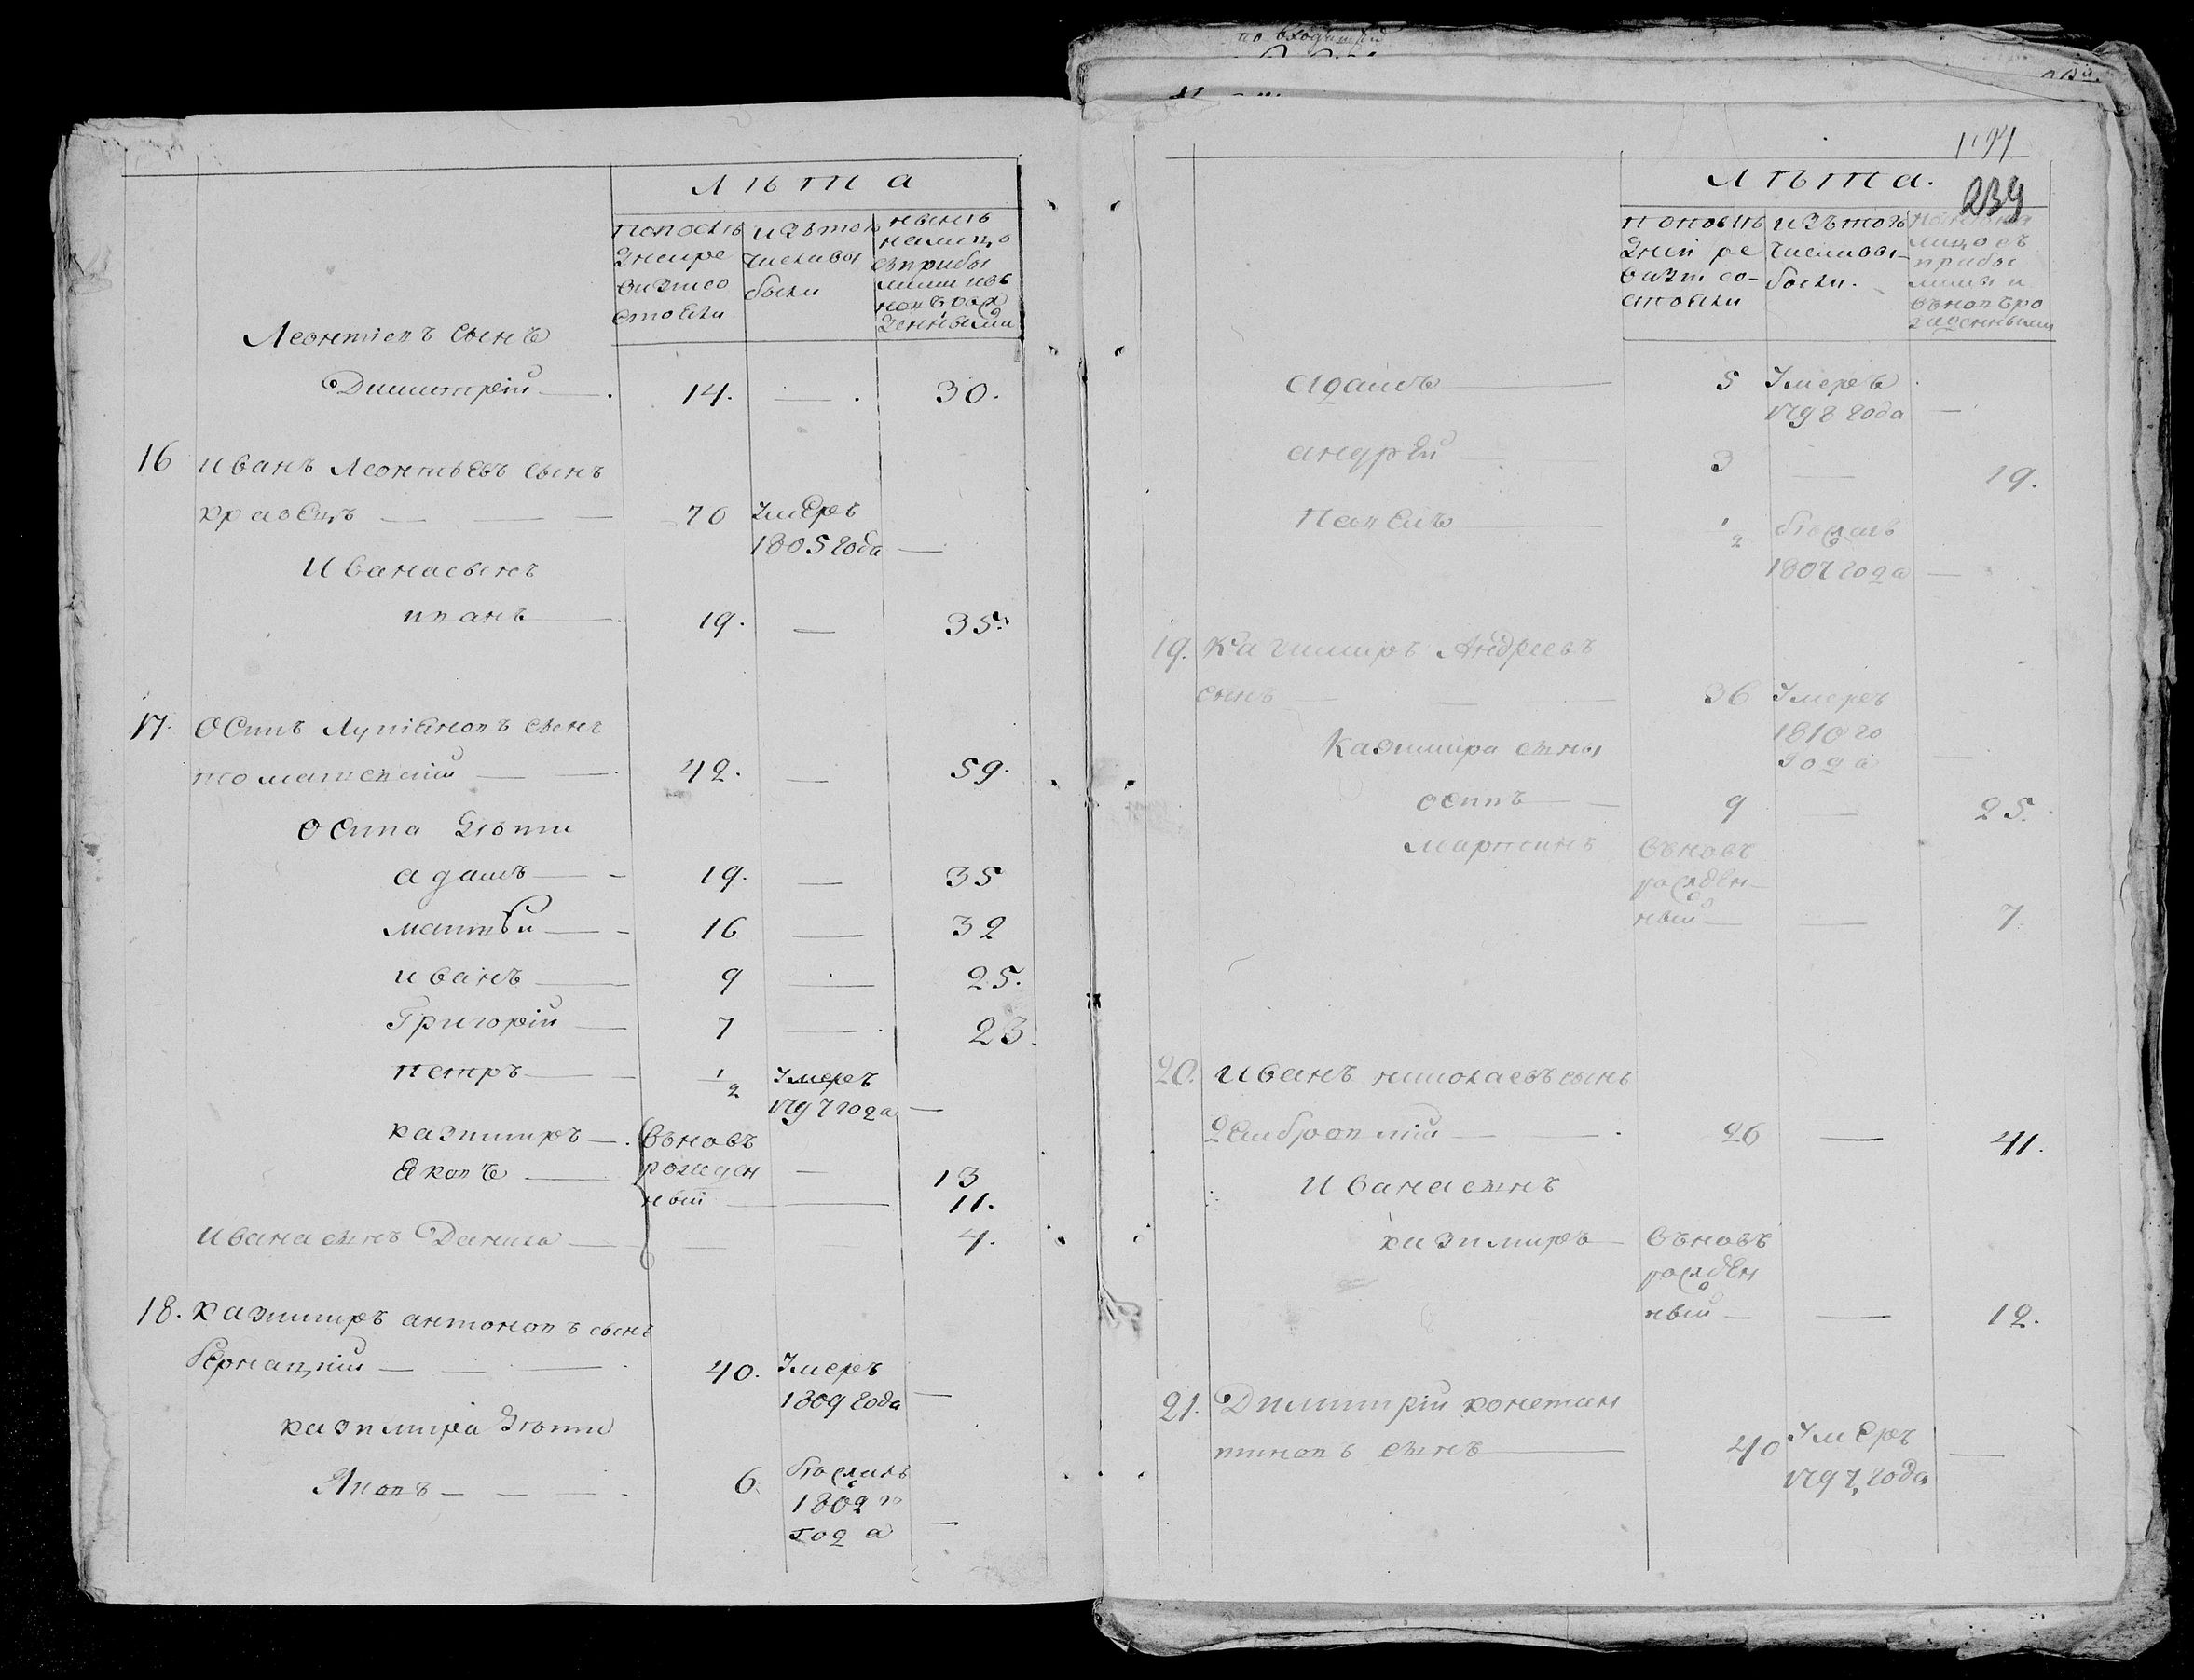 Лѣта
попослѣ
дней ре
визіи со
стояли
изътого
числа вы
были
нынѣ
на лицо
съприбы
лыми
рож
денными
Леонтіевъ сынъ
Димитрій — 14. — 30.
16 Иванъ Леонтьевъ сынъ
кравецъ — 70 Умеръ
1805 года —
Ивана сынъ
иванъ — 19. — 35.
17. Осипъ сынъ
томашевскій — 42. — 59.
Осипа дѣти
адамъ — 19. — 35
матвѣй — 16 — 32
иванъ — 9 — 25.
Григорій — 7 — 23.
петръ — 1/2 Умеръ
1797 года —
казимиръ — вновь
яковъ — рожден — 13
ный — 11.
Ивана сынъ Данила — 4.
18. казимиръ антоновъ сынъ
бернацкій — 40. Умеръ
1809 года —
казимира дѣти
Яновъ — 6. бѣжалъ
1802 го
года —
239
Лѣта.
попослѣ
дней ре
визіи со-
стояли
изътого
числа вы-
были.
лицо съ
прибы
лыми и
вновь ро
жденными
адамъ — 5 Умеръ
1798 года —
андрей — 3 — 19.
1/2 бѣжалъ
1807 года —
19. Казимиръ Андреевъ
сынъ — 36 Умеръ
1810 го
года —
Казимира сыны
осипъ — 9 — 25.
мартинъ вновь
рожден-
ный — 7
20. Иванъ николаевъ сынъ
дембровскій — 26 — 41.
Ивана сынъ
казимиръ — вновь
рожден
ный — 12.
21. Димитрій констан
тиновъ сынъ — 40 Умеръ
1797 года —